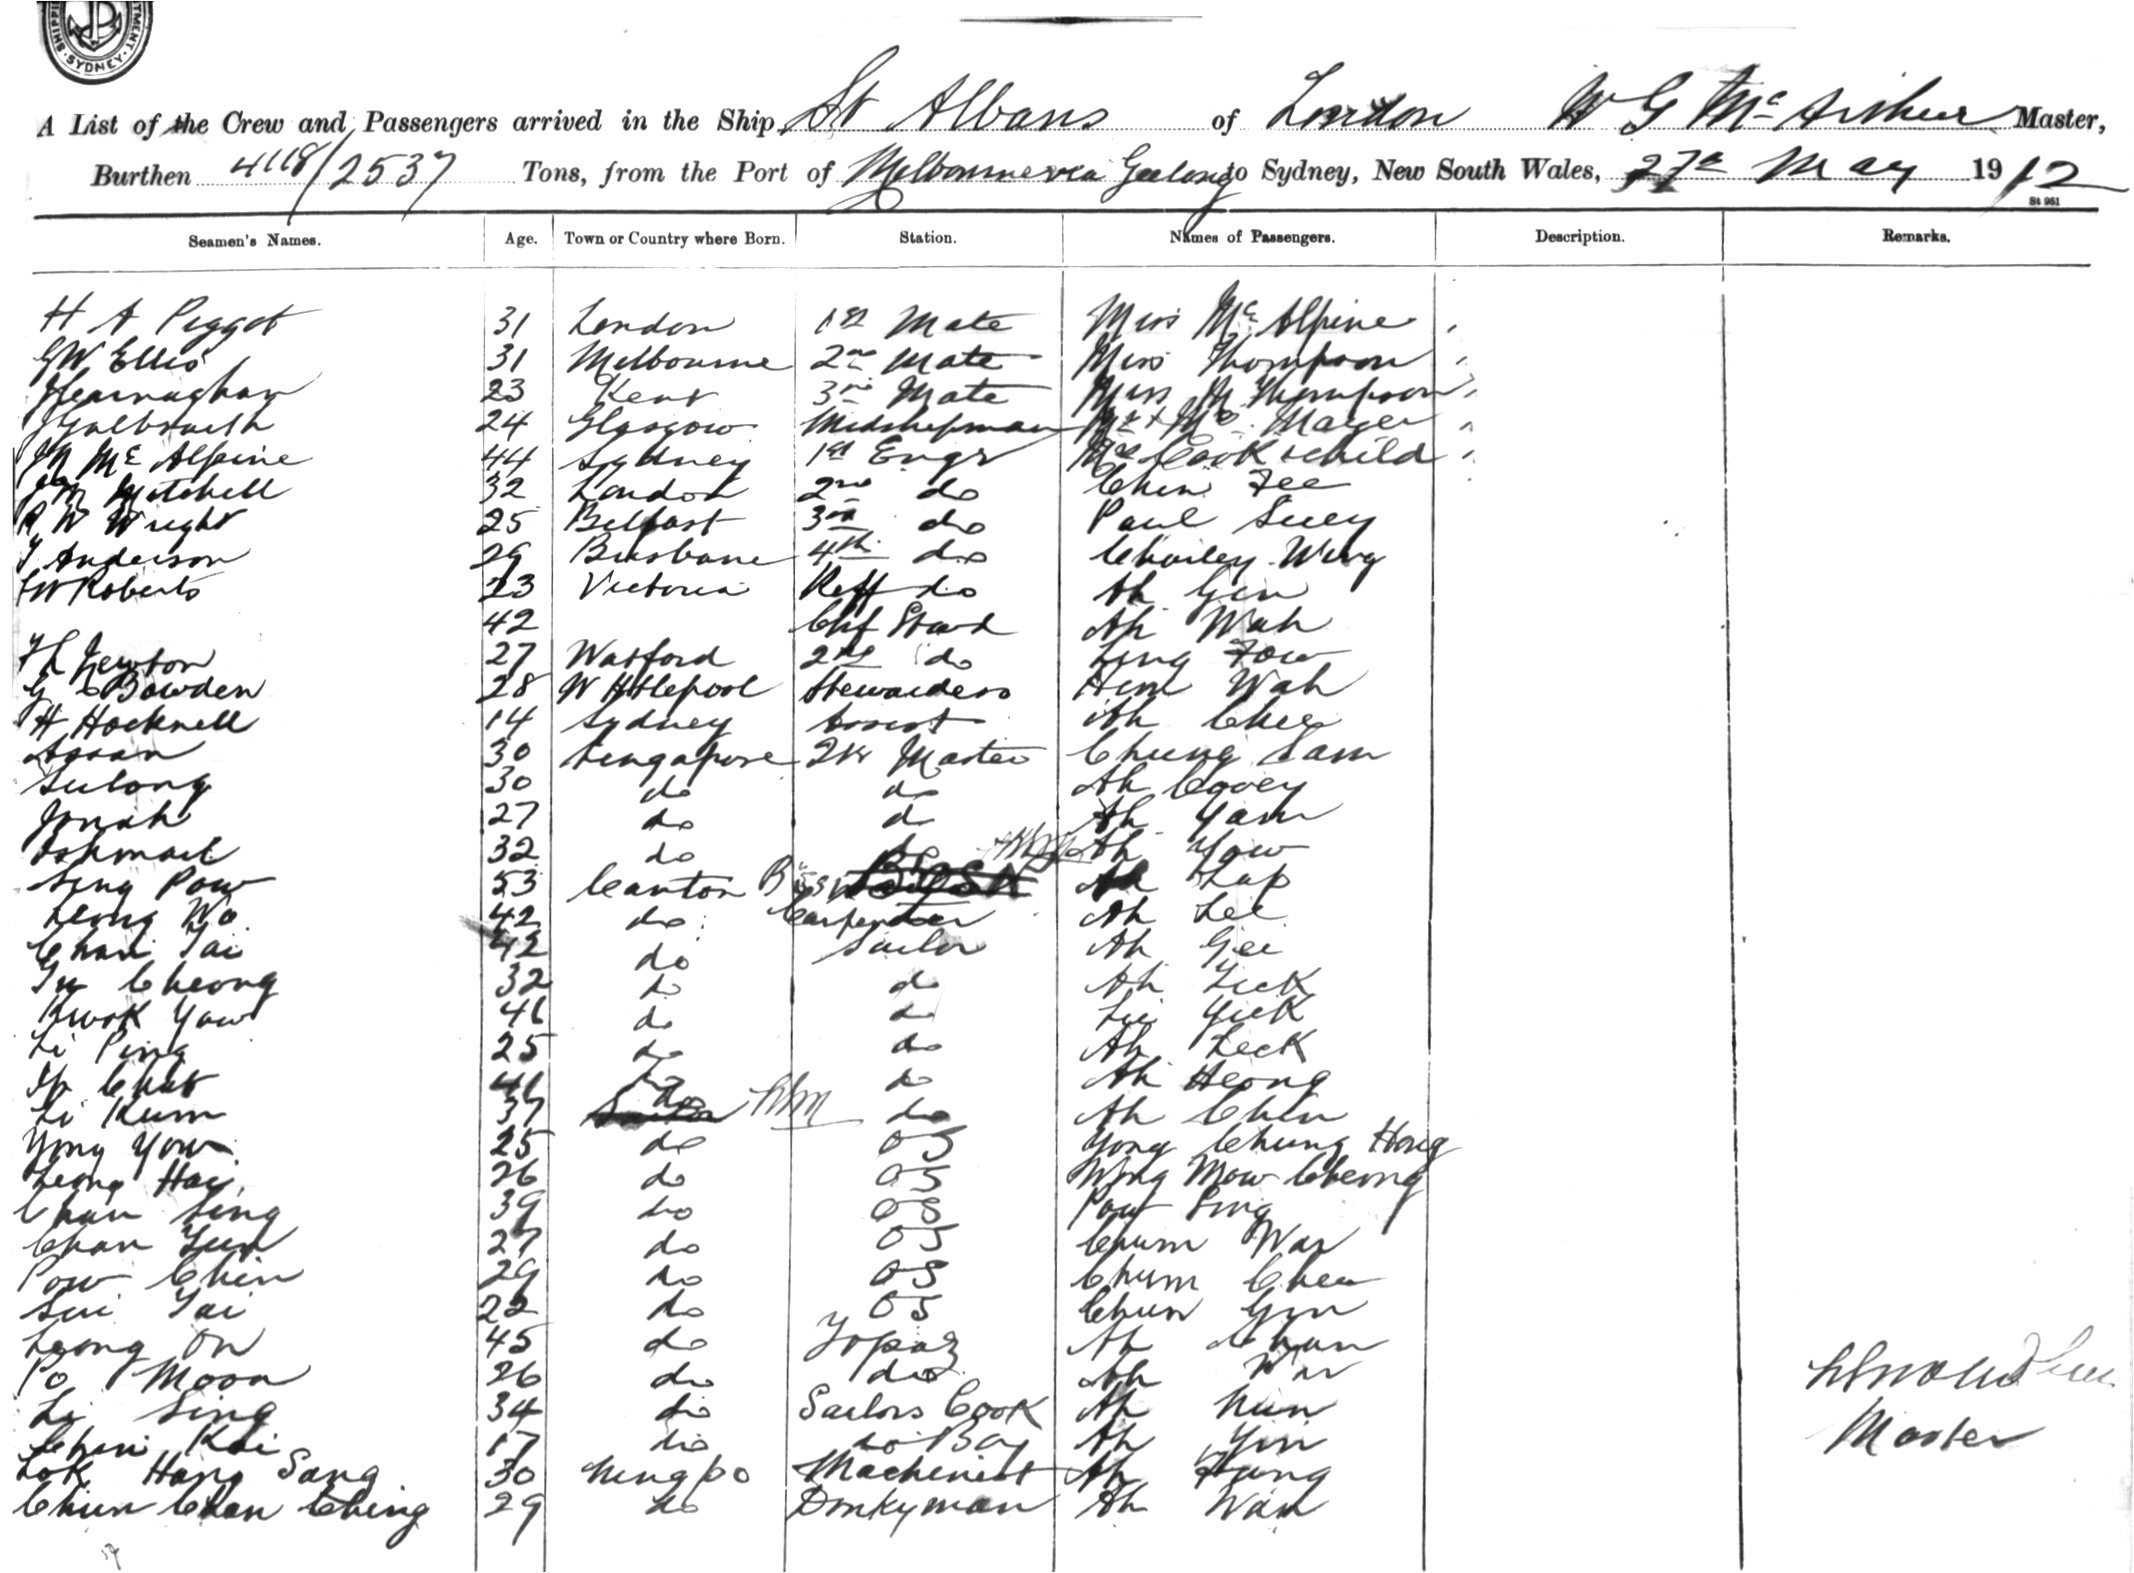 SHIPPI
TMENT.
SYDNEY
A List of the Crew and Passengers arrived in the Ship St Albans of London W G McArthur Master,
Burthen 4118/2537 Tons, from the Port of Melbourne via Geelong to Sydney, New South Wales, 27th May 1912
St 961
Seamen's Names. Age. Town or Country where Born. Station. Names of Passengers. Description. Remarks.
H A Piggot 31 London 1st Mate Miss McAlpine
GW Ellis 31 Melbourne 2nd Mate Miss Thompson
23 Kent 3rd Mate Miss M Thompson
J Galbraith 24 Glasgow Midshipman Mr & Mrs Mayer
McAlpine 44 Sydney 1st Engr Mrs Cook & child
Mitchell 32 London 2nd do Chin Fee
R W Wright 25 Belfast 3rd do Paul Suey
Anderson 29 Brisbane 4th do Charley Wing
GW Roberts 23 Victoria Reff do Ah Gin
42 Chf Stwd Ah Wah
Newton 27 Watford 2nd do Ling Fow
G Bowden 28 W Htlepool Stewardess Him Wah
H Hocknell 14 Sydney Assist Ah Chee
Assan 30 Singapore Qr Master Chung Sam
Sulong 30 do do Ah Cooey
Jonah 27 do do Ah Yam
Ishmail 32 do do Ah Yow
Sing Pow 53 Canton Ah Lap
Leong Wo 42 do Carpenter Ah Lee
Chan Tai 42 do Sailor Ah Gee
Cheong 32 do do Ah Lick
Kwok Yow 41 do do Lee Yick
Li Ping 25 do do Ah Leck
Ip Chat 41 do do Ah Heong
Li Kum 37 do do Ah Chin
Yong Yow 25 do OS Yong Chung Hong
Leong Hoy 26 do OS Wong Mow Cheong
Chan Sing 39 do OS Pow Sing
Chan Yun 27 do OS Chum War
Pow Chin 29 do OS Chum Chew
Sui Tai 22 do OS Chun Gin
Leong On 45 do Topaz Ah Chun
Po Moon 26 do do Ah War
Li Sing 34 do Sailors Cook Ah Nun
Chin Kai 17 do do Boy Ah Yin
Master
Lok Hang Sang 30 Ningpo Machinist Ah Hung
Chun Chan Ching 29 do Donkyman Ah Wah